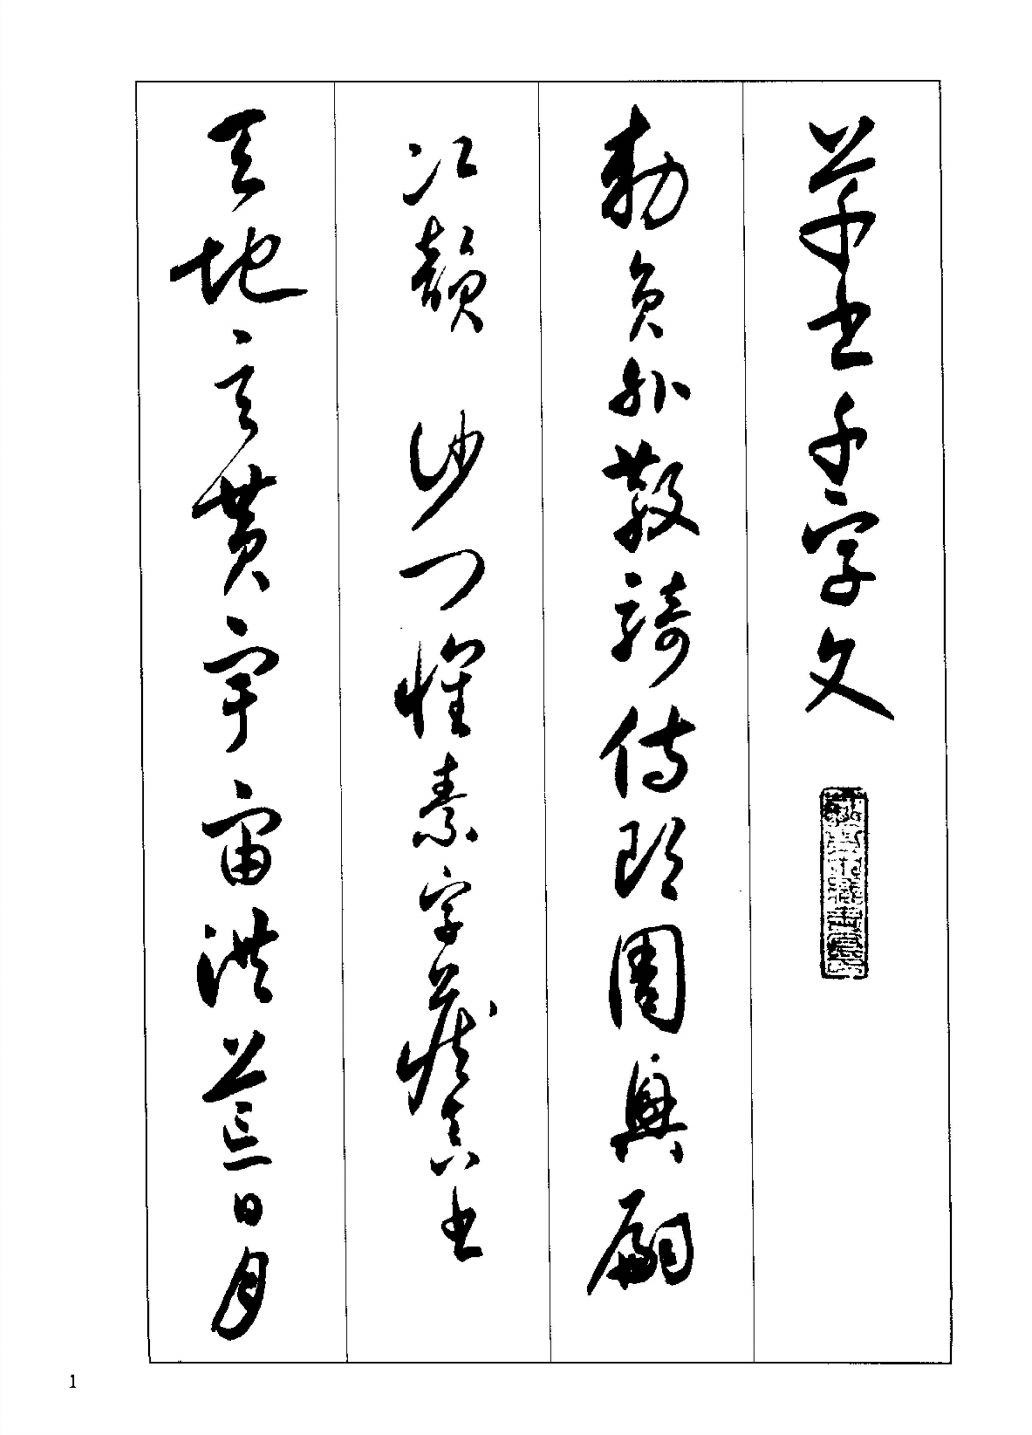 草書千字文
勅員外散騎侍郎周興嗣
次韻 沙門懷素字藏真書
天地玄黃宇宙洪荒日月
1